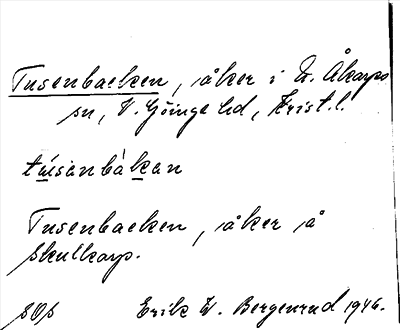 Tusenbacken, åker i N. Åkarps
sn, V. Göinge hd, Krist. l.
túsanbàkan
Tusenbacken, åker å
Skulkarp.
Erik W. Bergenrud 1946.